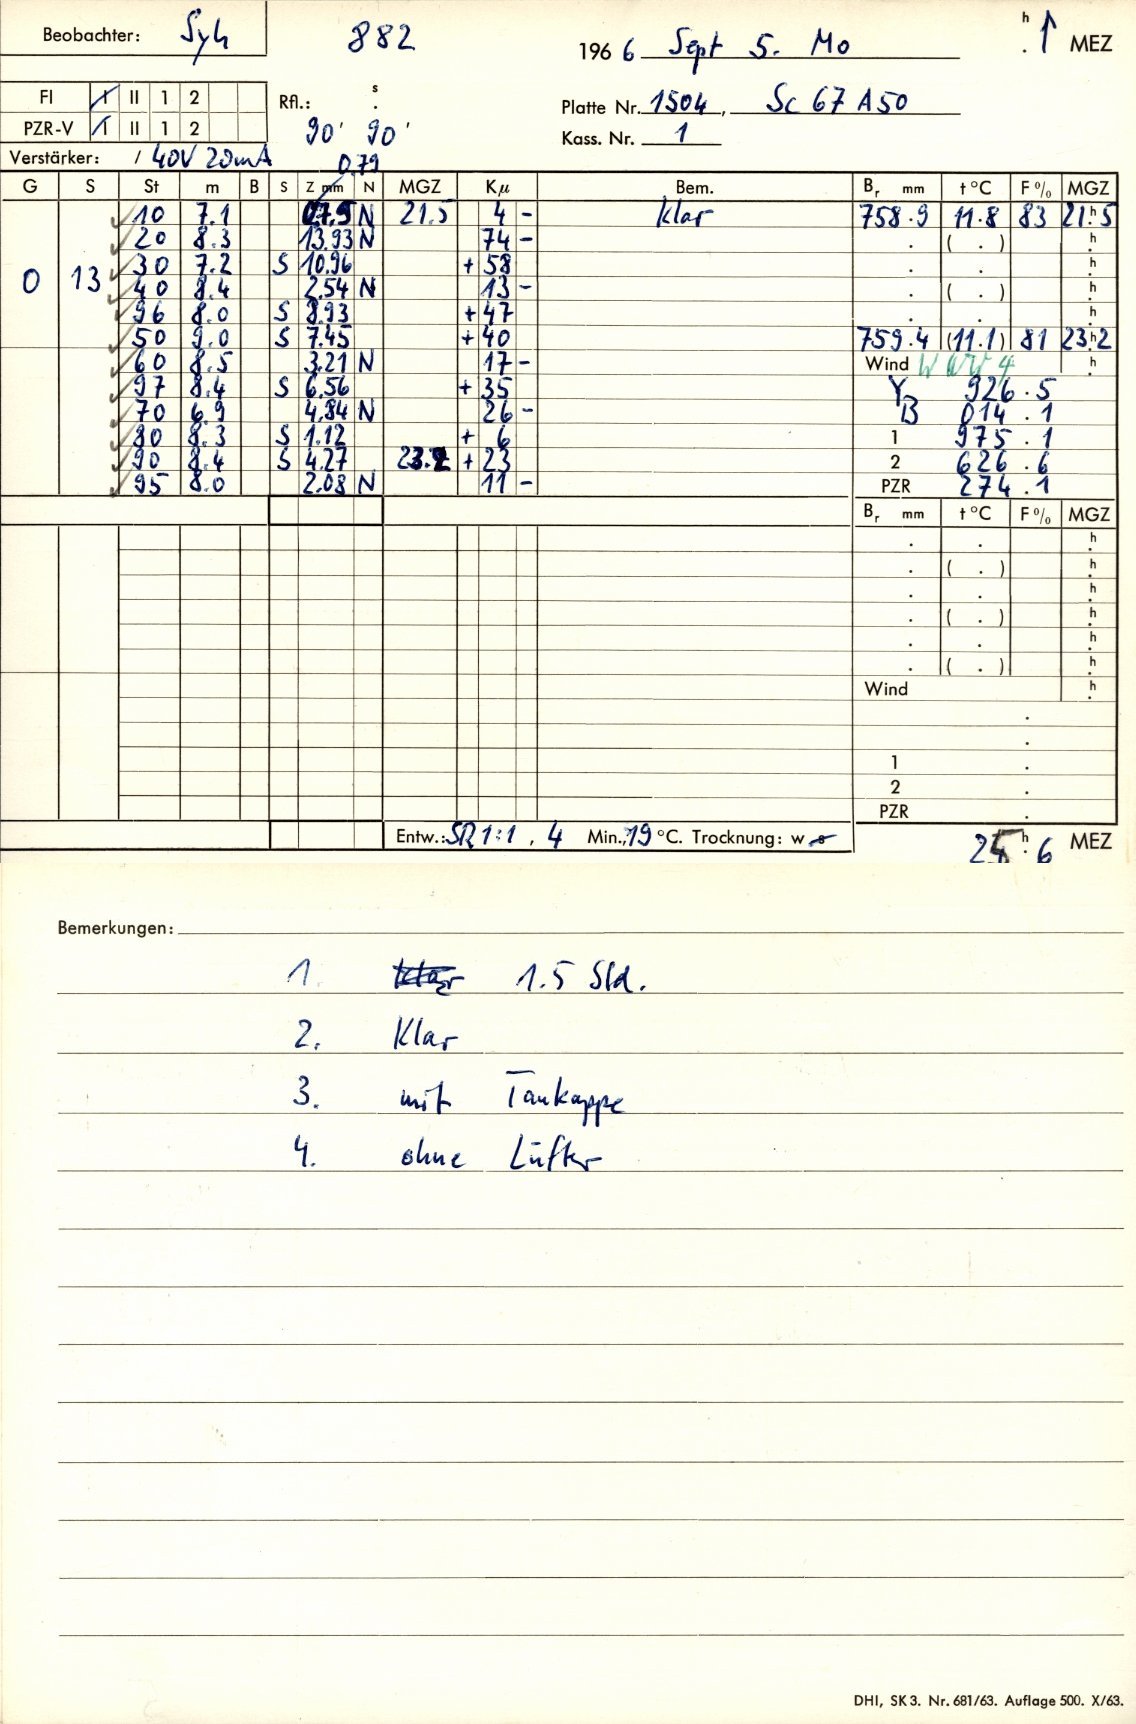 Beobachter: Syh 882 1966 Sept 5. Mo h . ↑ MEZ
FI I II 1 2 Rfl.: s . Platte Nr. 1504, Sc 67 A 50
PZR-V I II 1 2 90' 90' Kass. Nr. 1
Verstärker: / 40V 20mA 0.79
G S St m B S Z mm N MGZ Kμ Bem. Br mm t °C F % MGZ
10 7.1 N 21.5 4 - klar 758.9 11.8 83 21h5
20 8.3 13.93 N 74 - . ( . ) h
30 7.2 S 10.96 + 58 . . h
0 13 40 8.4 2.54 N 13 - . ( . ) h
96 8.0 S 8.93 + 47 . . h
50 9.0 S 7.45 + 40 759.4 (11.1) 81 23h2
60 8.5 3.21 N 17 - Wind h
97 8.4 S 6.56 + 35 Y 926.5
70 6.9 4.84 N 26 - B 014.1
80 8.3 S 1.12 + 6 1 975.1
90 8.4 S 4.27 23.2 + 23 2 626.6
95 8.0 2.08 N 11 - PZR 274.1
Br mm t °C F % MGZ
. . h
. ( . ) h
. . h
. ( . ) h
. . h
. ( . ) h
Wind h
.
.
1 .
2 .
PZR .
Entw.: SR 1:1, 4 Min., 19 °C. Trocknung: w s h . 6 MEZ
Bemerkungen:
1. klar 1.5 Std.
2. Klar
3. mit Taukappe
4. ohne Lüfter
DHI, SK 3. Nr. 681/63. Auflage 500. X/63.